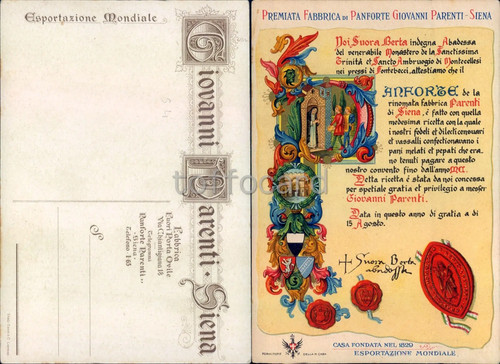 Esportazione Mondiale
Giovanni Parenti - Siena
Fabbrica
Fuori Porta Ovile
Via Chiantigiana 18
Telegrammi
Panforte Parenti
- Siena -
Telefono 1-85
S
PREMIATA FABBRICA DI PANFORTE GIOVANNI PARENTI - SIENA
Noi Suora Berta indegna Abadessa
del venerabile Monastero de la Santissima
Trinità et Sancto Ambruogio di Montecellesi
nei pressi di Fontebecci, attestiamo che il
PANFORTE de la
rinomata fabbrica Parenti
di Siena, è fatto con quella
medesima ricetta con la quale
i nostri fedeli et dilecti censuari
et vassalli confectionavano i
pani melati et pepati che era,
no tenuti pagare a questo
nostro convento fino dall'anno
Detta ricetta è stata da noi concessa
per spetiale gratia et privilegio a messer
Giovanni Parenti.
Data in questo anno di gratia a di
15 Agosto.
+ Suora Berta
abadessa
CASA FONDATA NEL 1829
ESPORTAZIONE MONDIALE